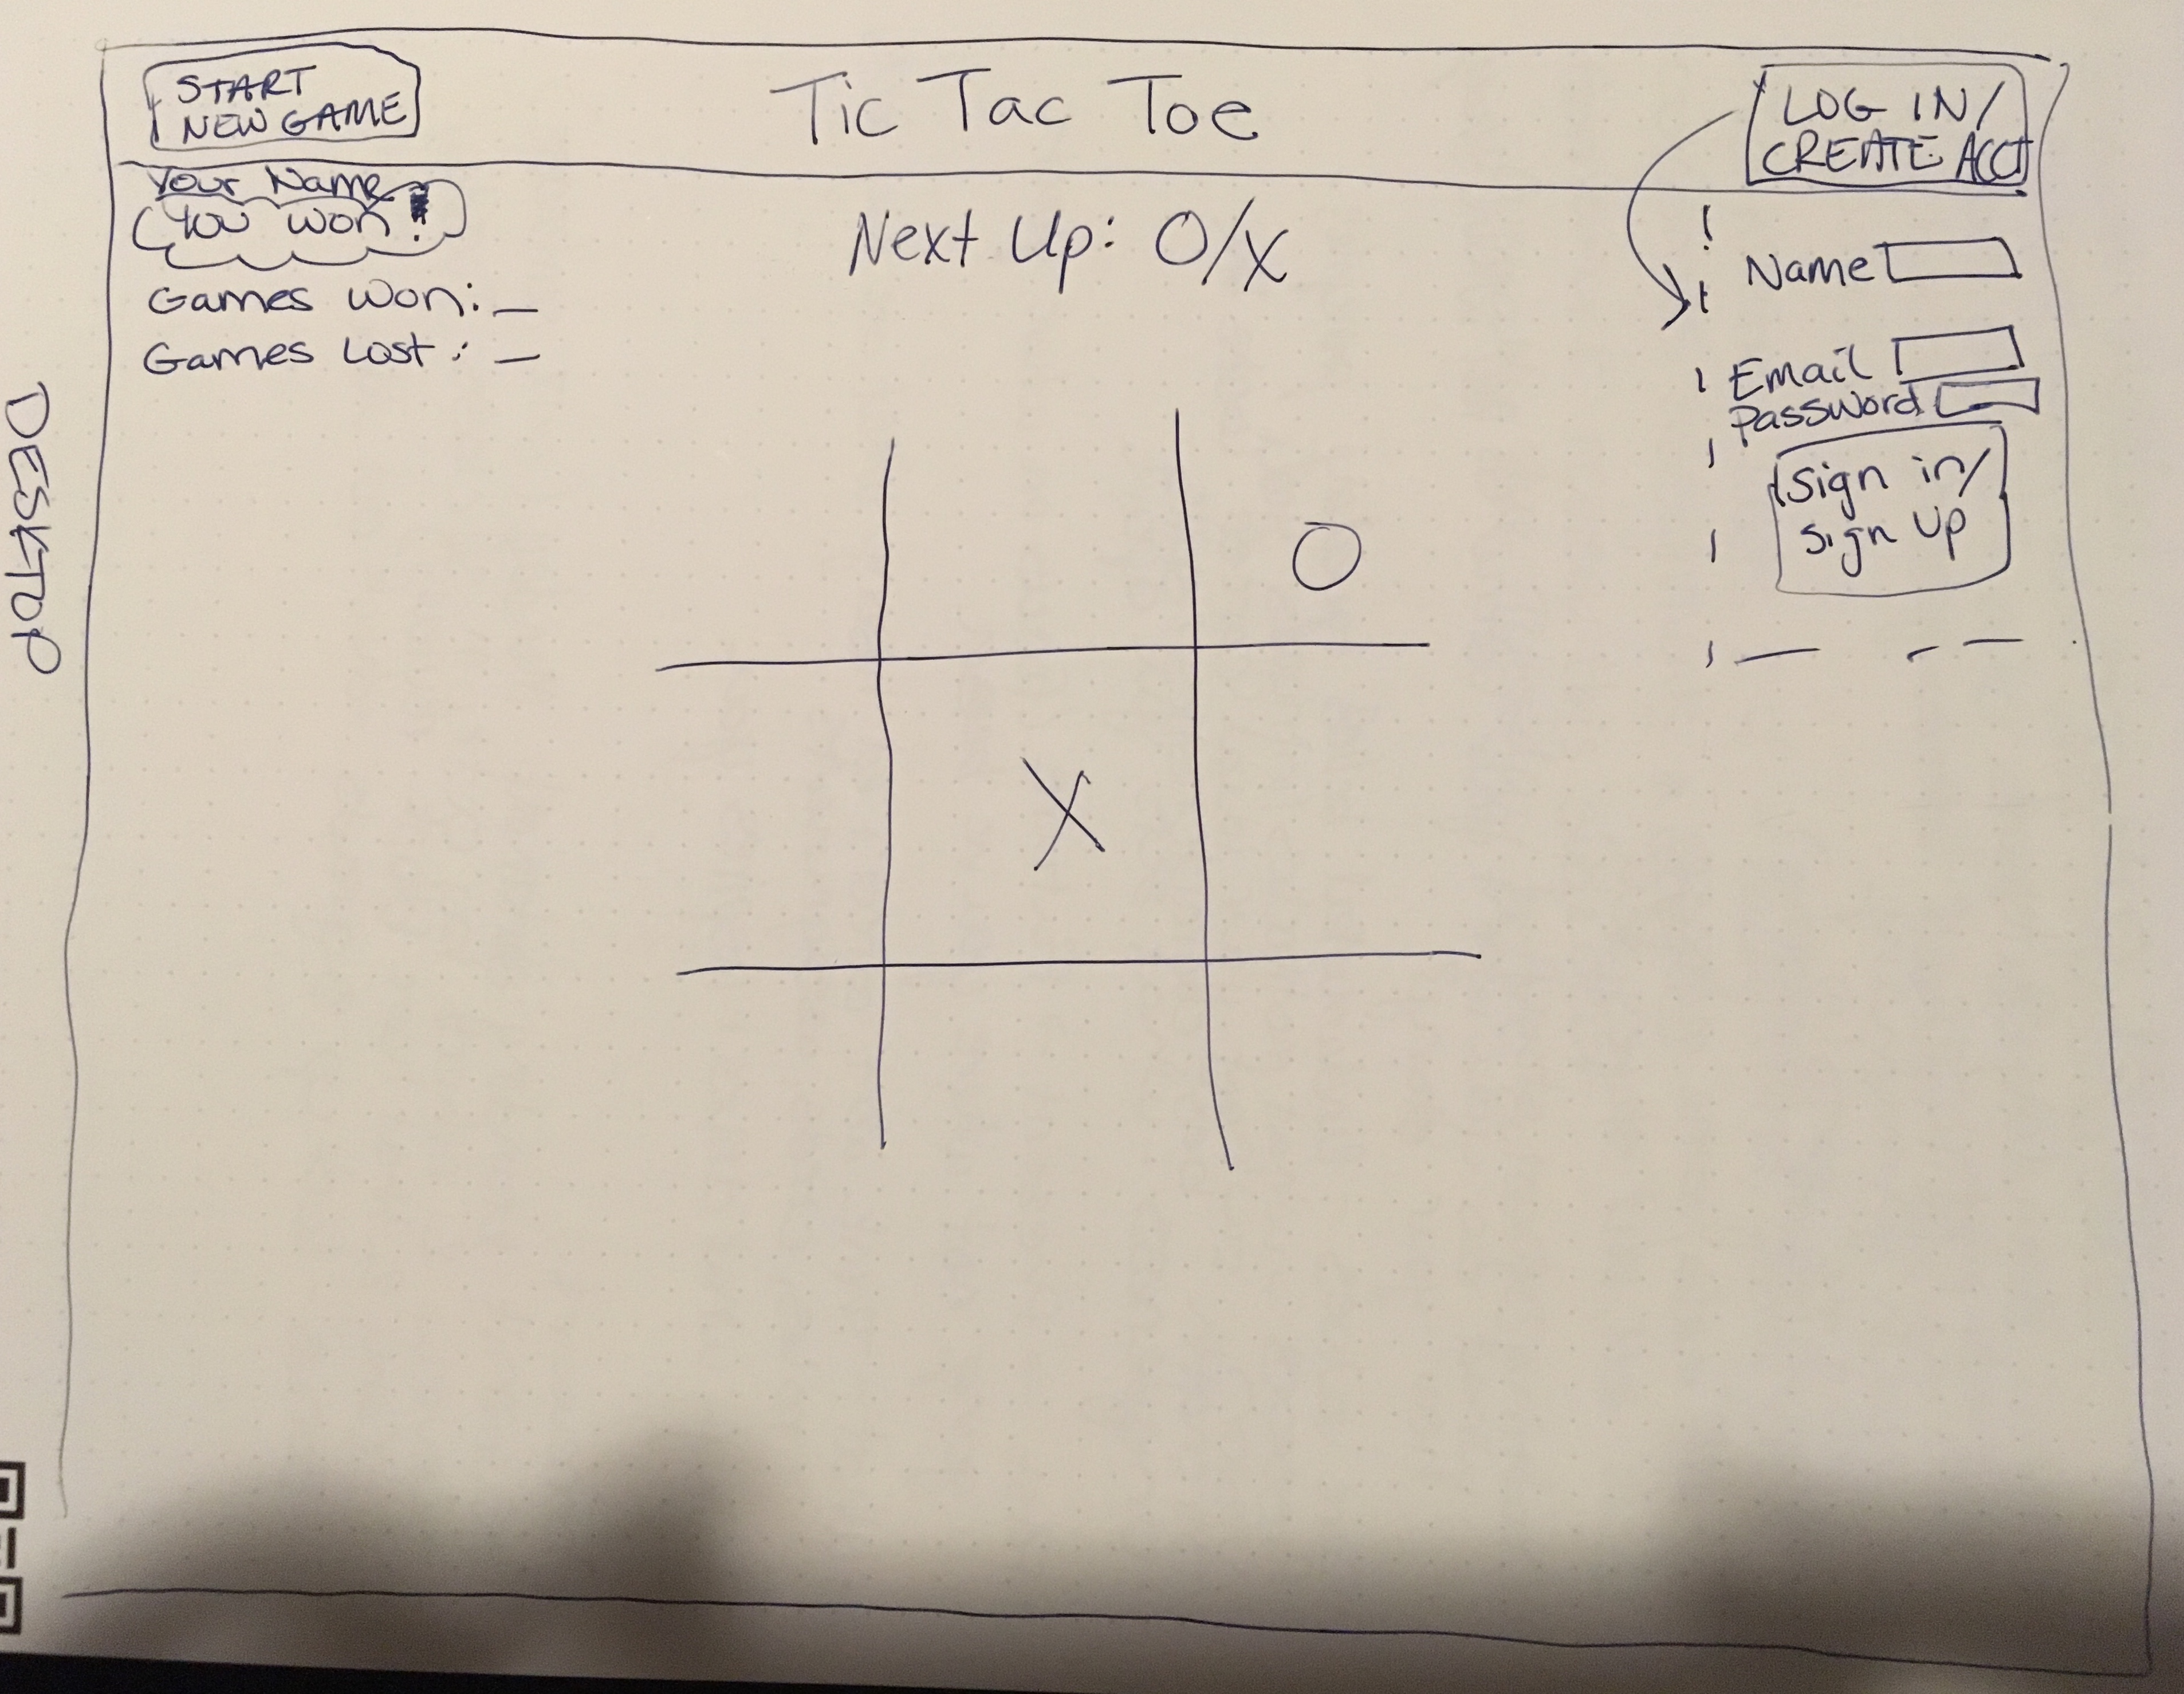 START
NEW GAME
Tic Tac Toe
LOG IN/
CREATE ACCT
Your Name
You won!
Games Won: _
Games Lost: _
Next Up: O/X
Name
Email
Password
Sign in/
Sign Up
O
X
DESKTOP